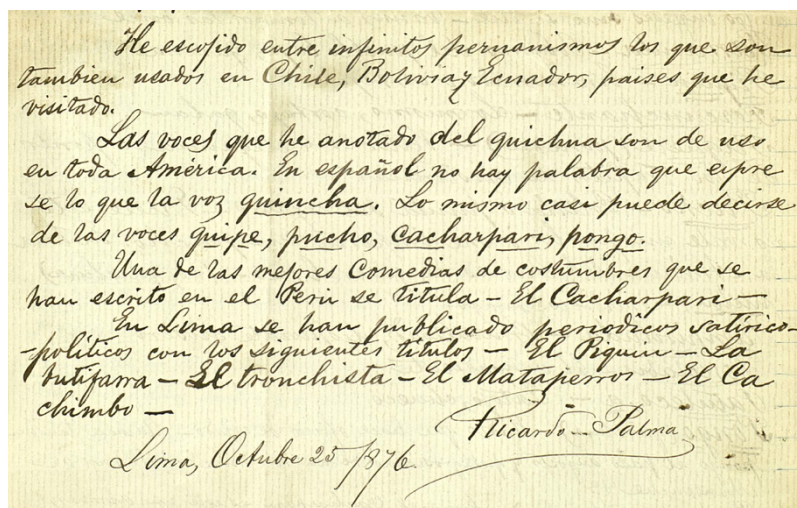 He escojido entre infinitos peruanismos los que son
tambien usados en Chile, Bolivia y Ecuador, paises que he
visitado.
Las voces que he anotado del quichua son de uso
en toda América. En español no hay palabra que expre
se lo que la voz quincha. Lo mismo casi puede decirse
de las voces quipe, pucho, cacharpari, pongo.
Una de las mejores Comedias de costumbres que se
han escrito en el Perú se titula - El Cacharpari -
En Lima se han publicado periodicos satírico-
-políticos con los siguientes títulos - El Piquin - La
butifarra - El tronchista - El Mataperros - El Ca
chimbo -
Ricardo Palma
Lima, Octubre 25/876